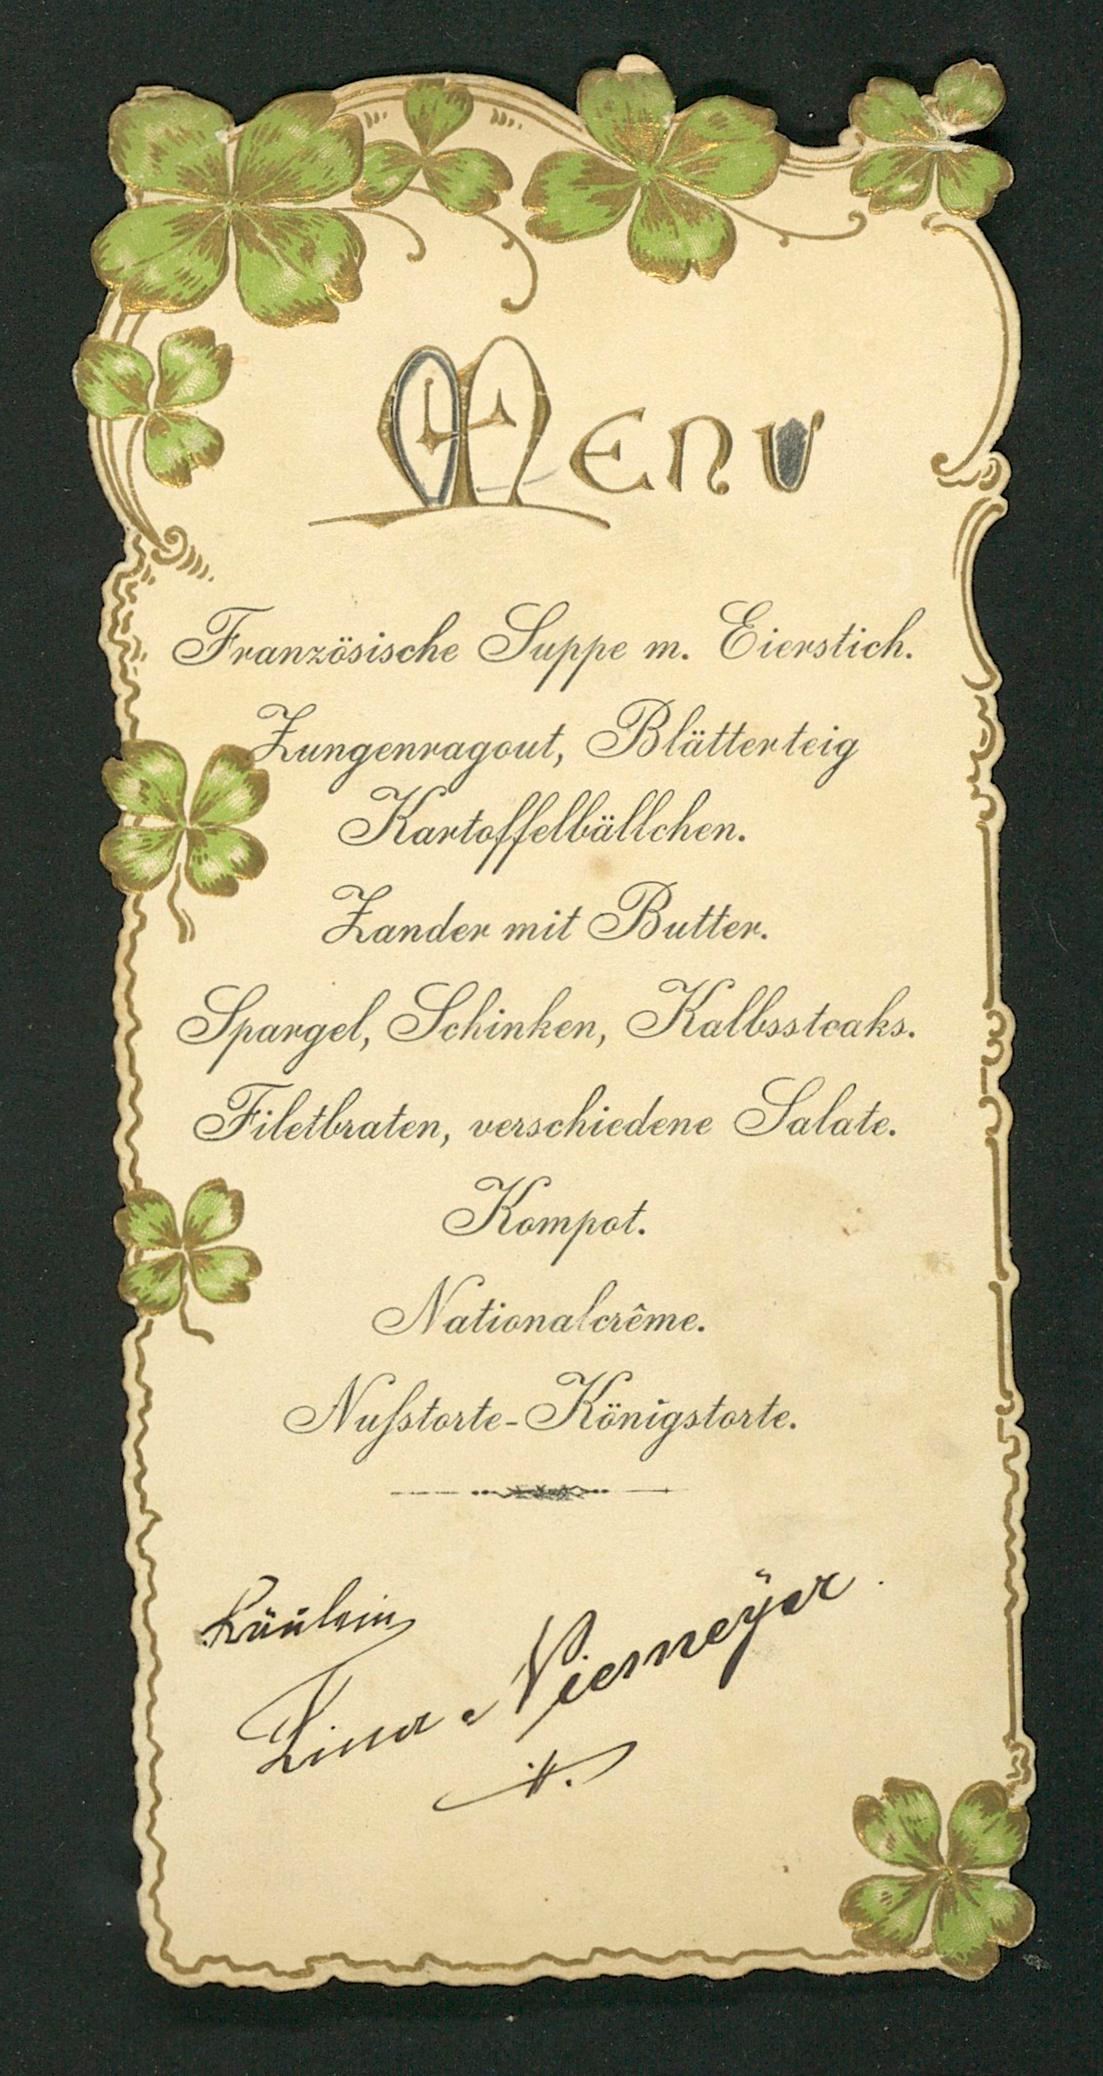 Menu
Französische Suppe m. Eierstich.
Zungenragout, Blätterteig
Kartoffelbällchen.
Zander mit Butter.
Spargel, Schinken, Kalbssteaks.
Filetbraten, verschiedene Salate.
Kompot.
Nationalcrême.
Nußstorte-Königstorte.
Fräulein
Lina Niemeÿer.